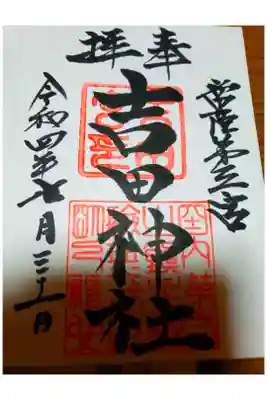 奉拝
常陸第三宮
吉田神社
令和四年七月三十一日